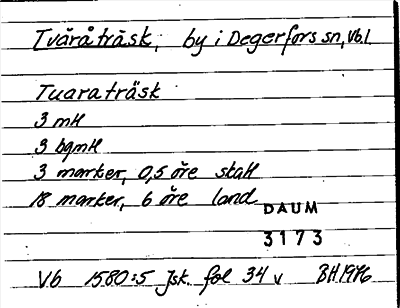 Tvåråträsk, by i Degerfors sn, Vb.l.
Tuaraträsk
3 mH
3 bgmH
3 marker, 0,5 öre skatt
18 marker, 6 öre land
DAUM
3173
Vb 1580:5 Jsk. fol 34 v BH 1976